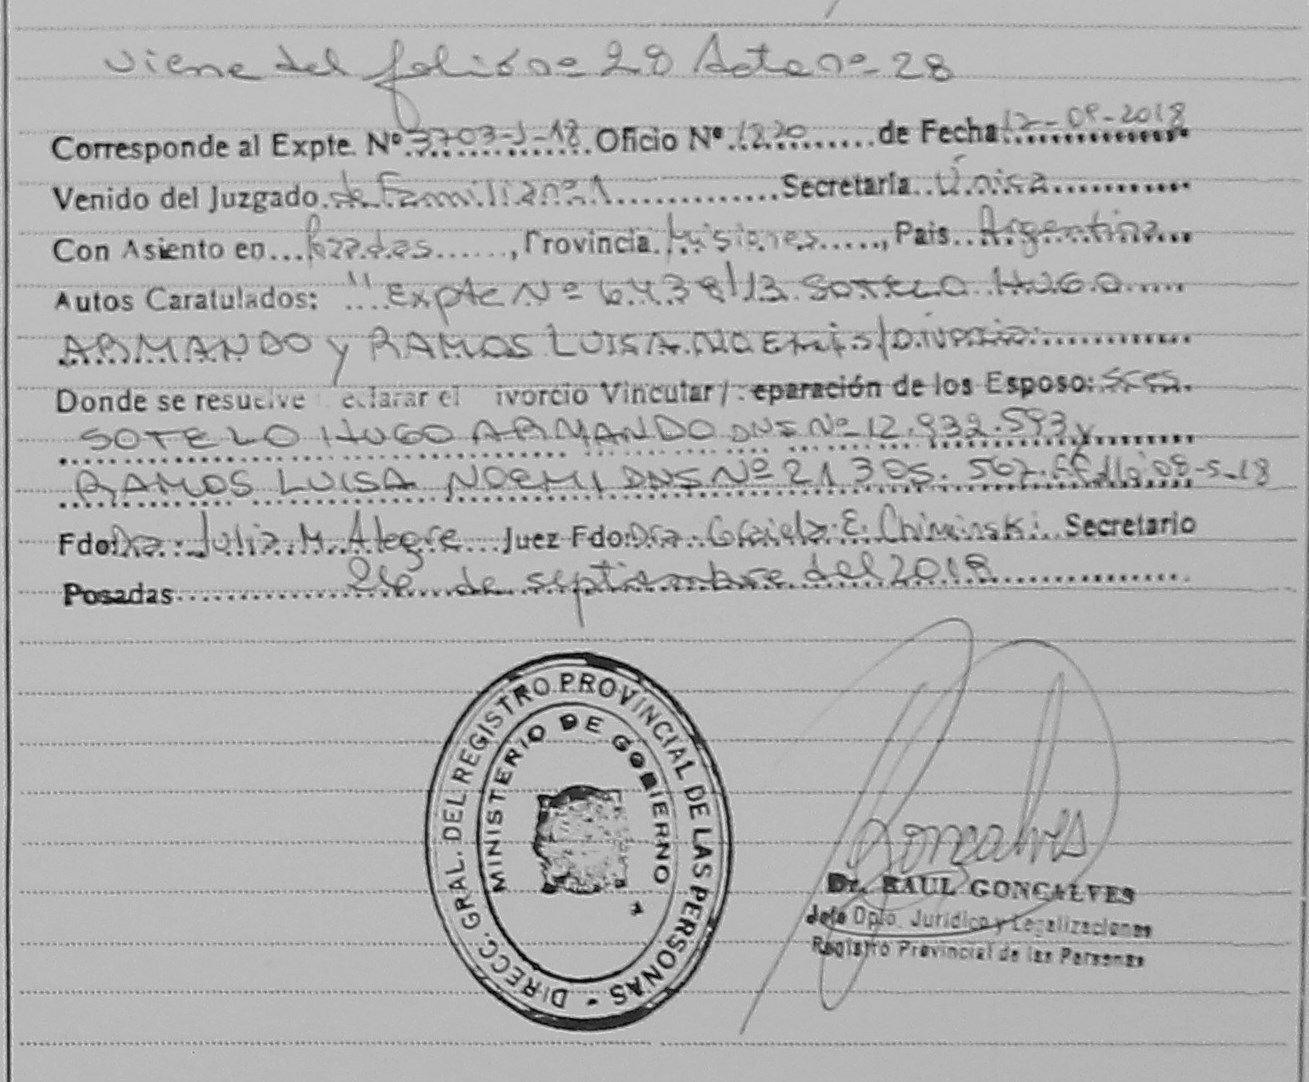 Viene del folio nº 28 Acta nº 28
Corresponde al Expte. Nº 3703-J-18 Oficio Nº 1220 de Fecha 12-09-2018
Venido del Juzgado de Familia nº 1 Secretaria Única
Con Asiento en Posadas, Provincia Misiones, Pais Argentina
Autos Caratulados: "Expte Nº 6438/13 SOTELO HUGO
ARMANDO y RAMOS LUISA NOEMI s/Divorcio.
Donde se resuelve eclarar el ivorcio Vincular / eparación de los Esposo: Sres.
SOTELO HUGO ARMANDO DNI Nº 12.932.593 y
RAMOS LUISA NOEMI DNI Nº 21.305.567. 08-5-18
Fdo: Dra. Julia M. Alegre Juez Fdo: Dra. Graciela E. Chiminski Secretario
Posadas 26 de septiembre del 2018
DIRECC. GRAL. DEL REGISTRO PROVINCIAL DE LAS PERSONAS -
MINISTERIO DE GOBIERNO
Gonçalves
Dr. RAUL GONÇALVES
Jefe Dpto. Jurídico y Legalizaciones
Registro Provincial de las Personas